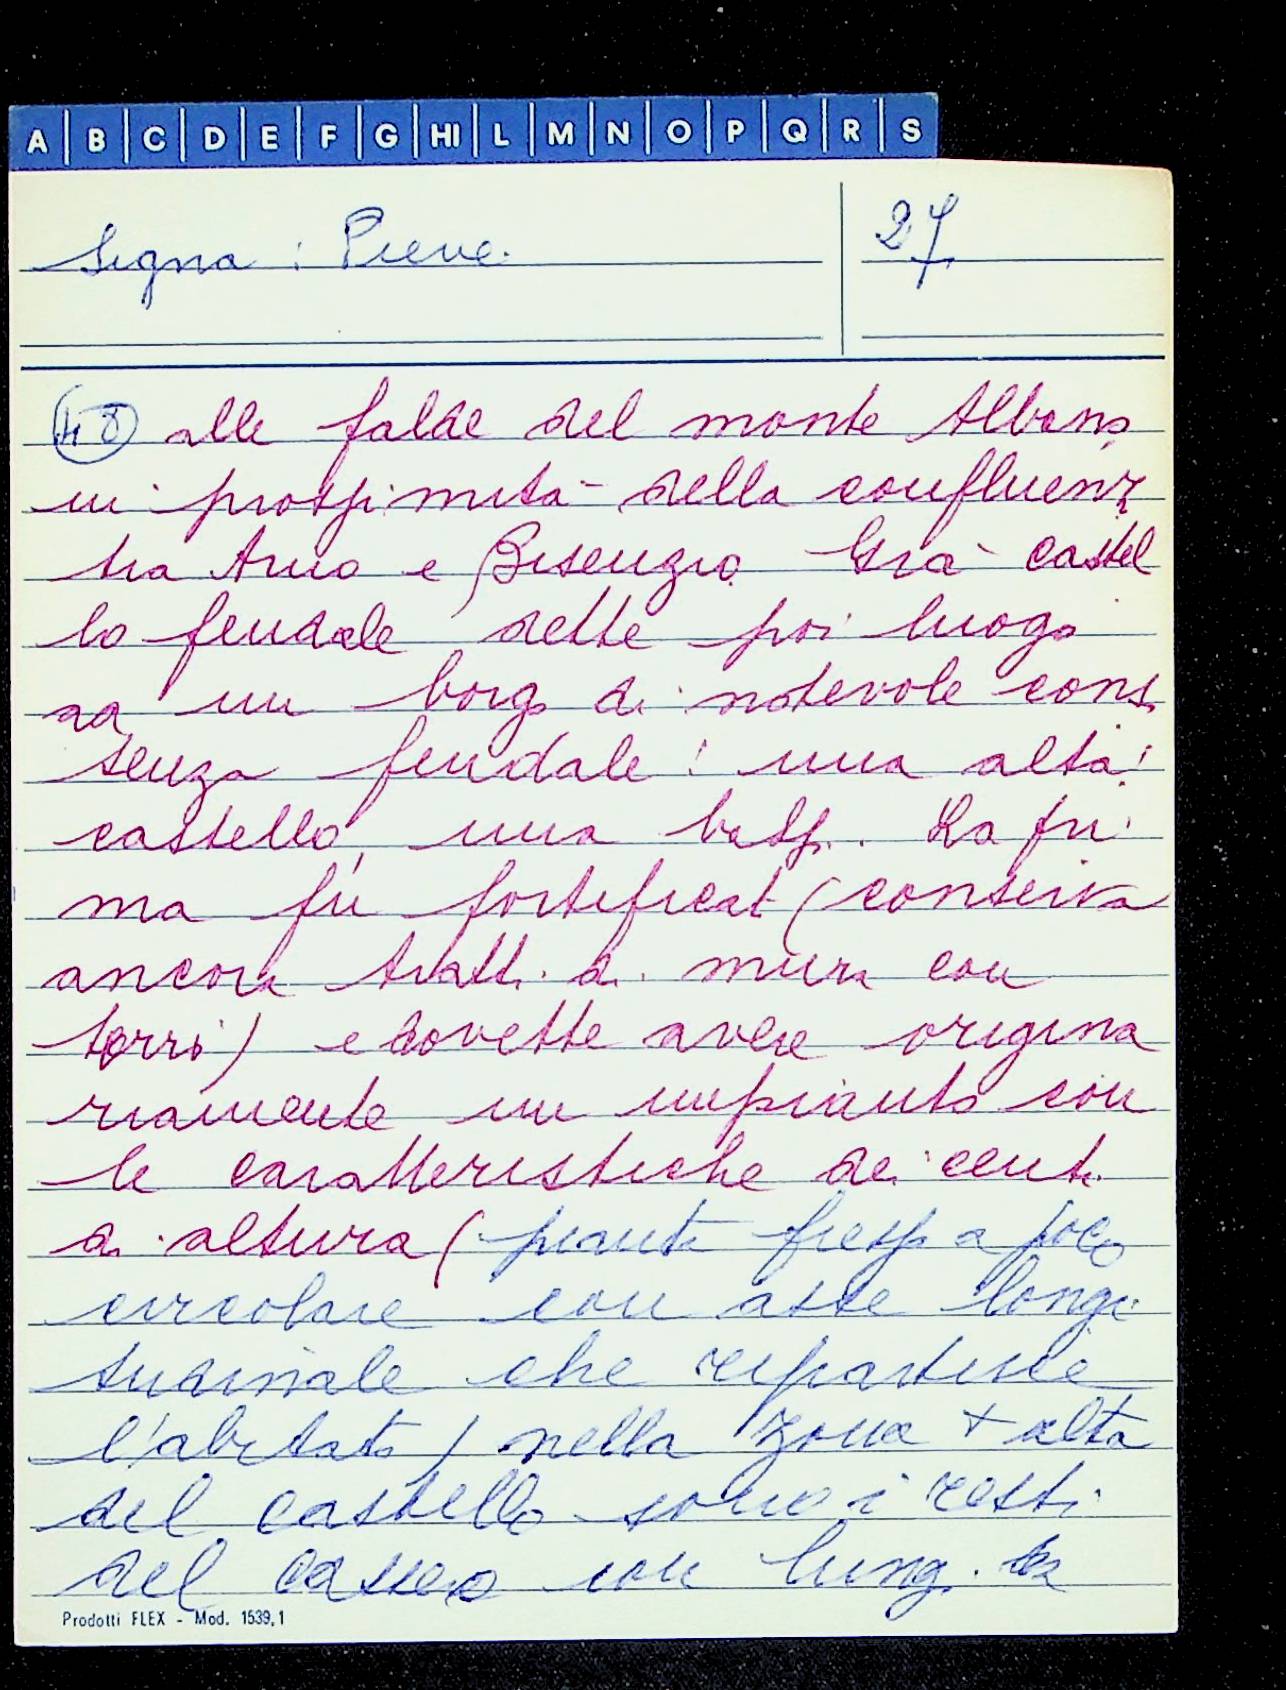 A B C D E F G HI L M N O P Q R S
Signa : Pieve.
27
48 alle falde del monte Albano
in prossimità della confluenz
tra Arno e Bisenzio. Già castel
lo feudale dette poi luogo
ad un borgo di notevole cons.
senza feudale : una alta :
castello, una bassa. La pri
ma fu fortificat (conserva
ancora tratti di mura con
torri) e dovette avere origina
riamente un impianto con
le caratteristiche dei centri
di altura (pianta presso a poco
circolare con asse longi
tudinale che ripartisce
l'abitato) nella zona + alta
del castello sono i resti
del cassero con lung.
Prodotti FLEX - Mod. 1539,1